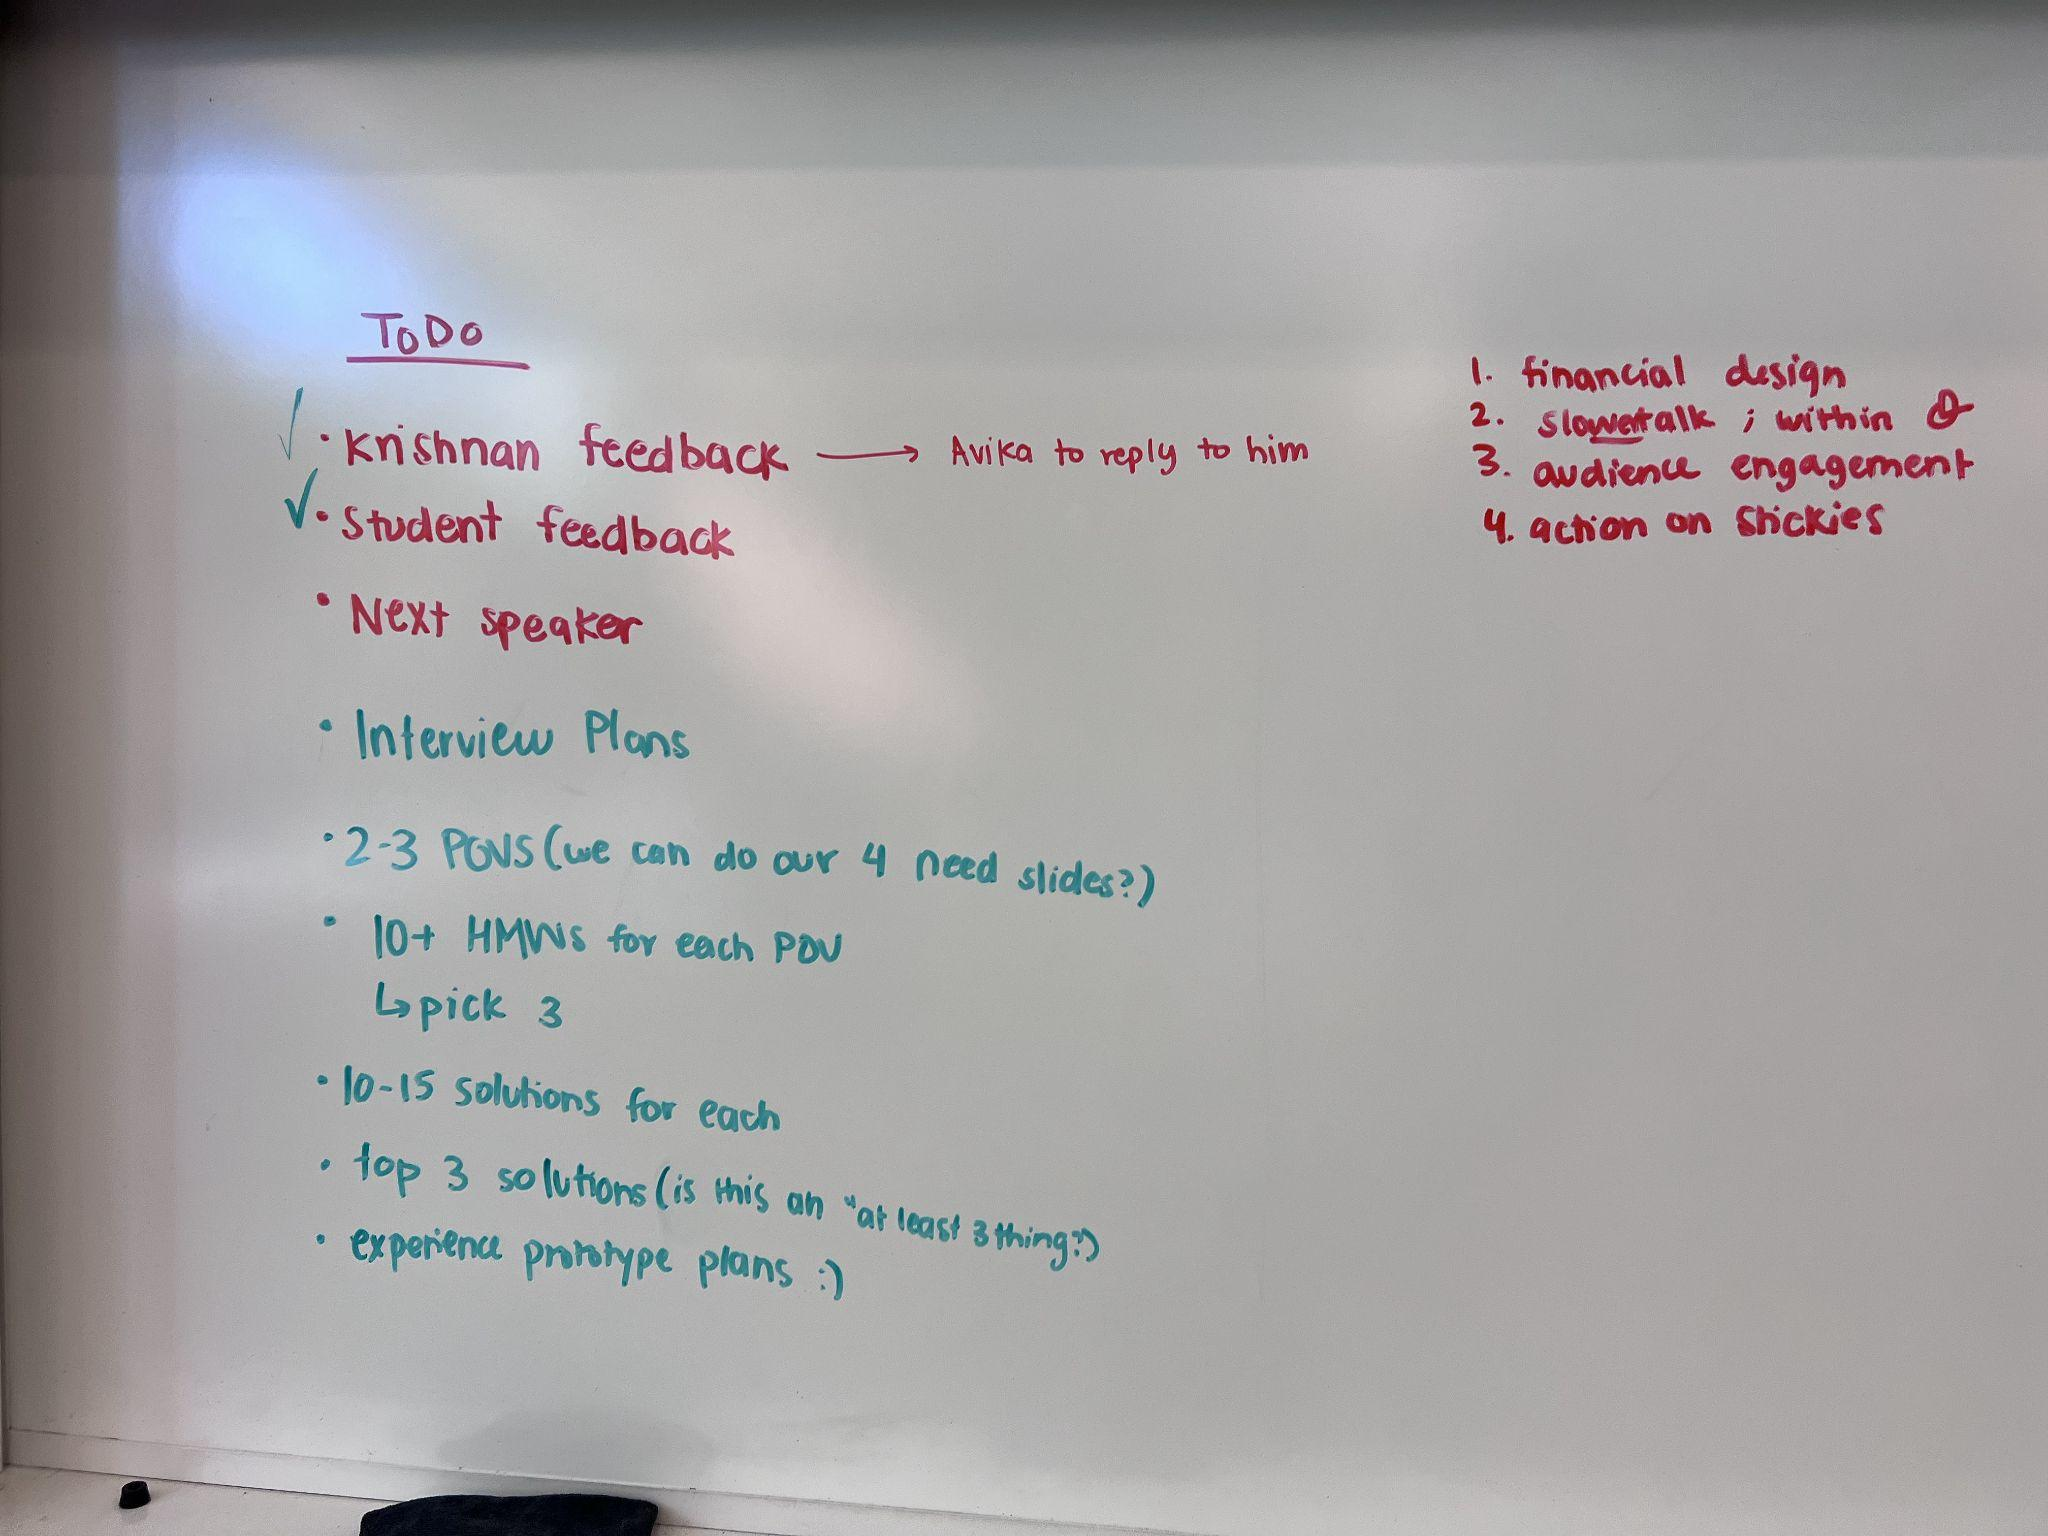 ToDo
✓ • Krishnan feedback → Avika to reply to him
✓ • Student feedback
• Next speaker
• Interview Plans
• 2-3 POVS (we can do our 4 need slides?)
• 10+ HMWs for each POV
↳ pick 3
• 10-15 solutions for each
• top 3 solutions (is this an "at least 3 thing?)
• experience prototype plans :)
1. financial design
2. slower talk ; within
3. audience engagement
4. action on stickies